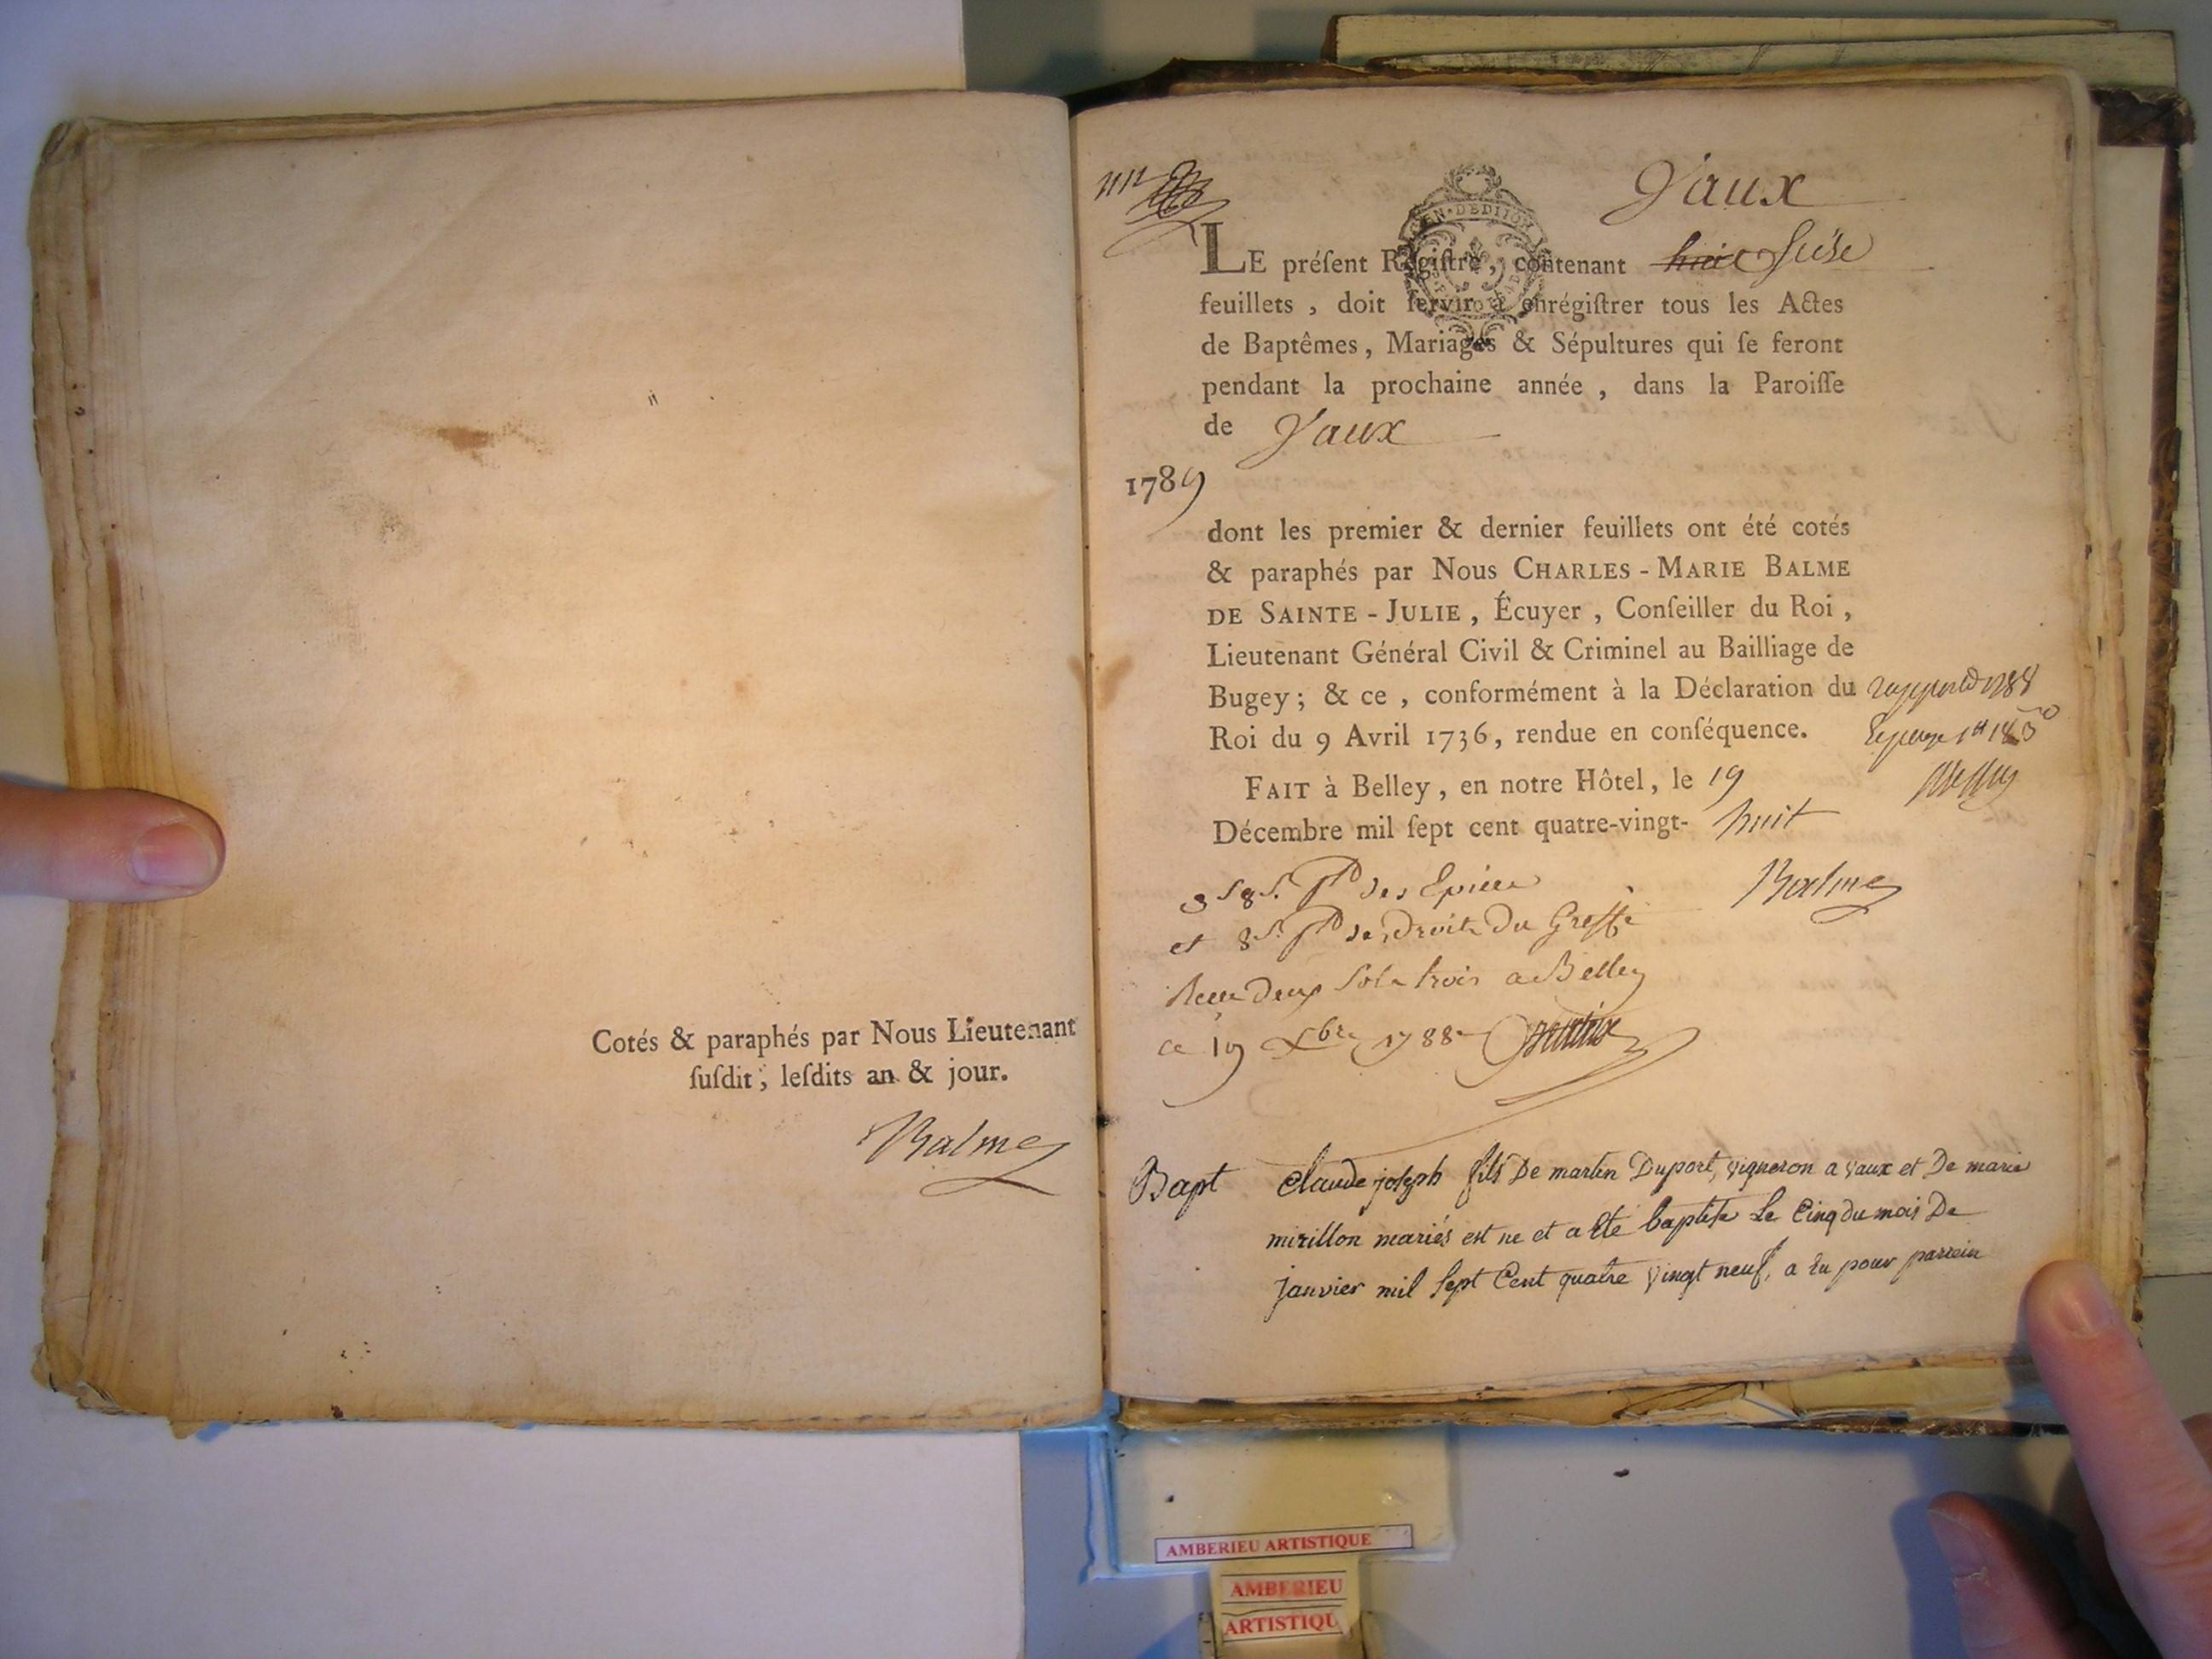 Cotés & paraphés par Nous Lieutenant
suſdit, leſdits an & jour.
Balme
Vaux
LE préſent Regiſtre, contenant huit seise
feuillets, doit ſervir à enrégiſtrer tous les Actes
de Baptêmes, Mariages & Sépultures qui ſe feront
pendant la prochaine année, dans la Paroiſſe
de Vaux
1789
dont les premier & dernier feuillets ont été cotés
& paraphés par Nous CHARLES-MARIE BALME
DE SAINTE-JULIE, Écuyer, Conſeiller du Roi,
Lieutenant Général Civil & Criminel au Bailliage de
Bugey; & ce, conformément à la Déclaration du
Roi du 9 Avril 1736, rendue en conſéquence.
FAIT à Belley, en notre Hôtel, le 19
Décembre mil ſept cent quatre-vingt-huit
Balme
et 8s. Droits Du Greffe
deux sols trois a Belley
ce 19 Xbre 1788
Bapt claude joseph fils De martin Duport, vigneron a vaux et De marie
mirillon mariés est ne et a ete baptise Le Cinq du mois De
janvier mil sept Cent quatre vingt neuf, a Eu pour parrein
AMBERIEU ARTISTIQUE
AMBERIEU
ARTISTIQU